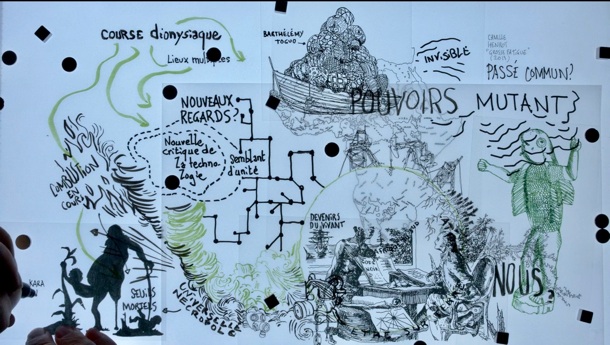 COURSE dionysiaque
Lieux multiples
BARTHÉLÉMY
TOGUO
INVISIBLE
PASSÉ COMMUN?
NOUVEAUX
REGARDS?
POUVOIRS MUTANT
Nouvelle
critique de
la techno-
logie
Semblant
d'unité
COMBUSTION
EN
COURS
DEVENIRS
DU VIVANT
NOUS
KARA
SEUILS
MORTELS
UNIVERSELLE
NÉCROPOLE